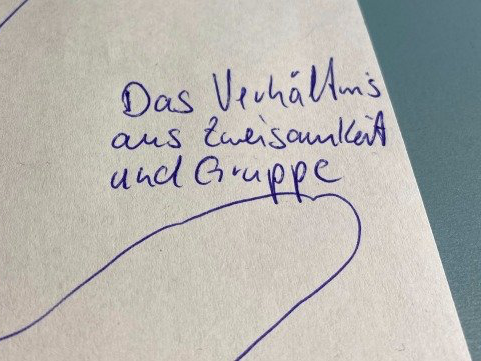 Das Verhältnis
aus Zweisamkeit
und Gruppe